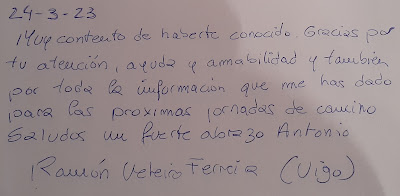 24-3-23
Muy contento de haberte conocido. Gracias por
tu atención, ayuda y amabilidad y también
por toda la información que me has dado
para las proximas jornadas de camino
Saludos un fuerte abrazo Antonio
Ramón Veteiro Ferreira (Vigo)